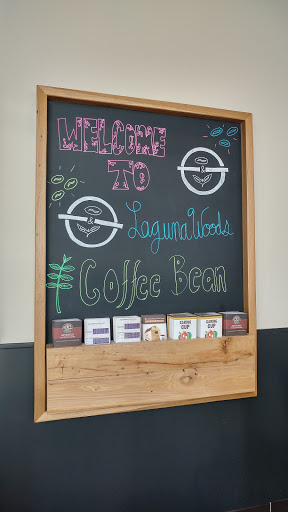 WELCOME
TO
&
&
Laguna Woods
Coffee Bean
CUP
CUP